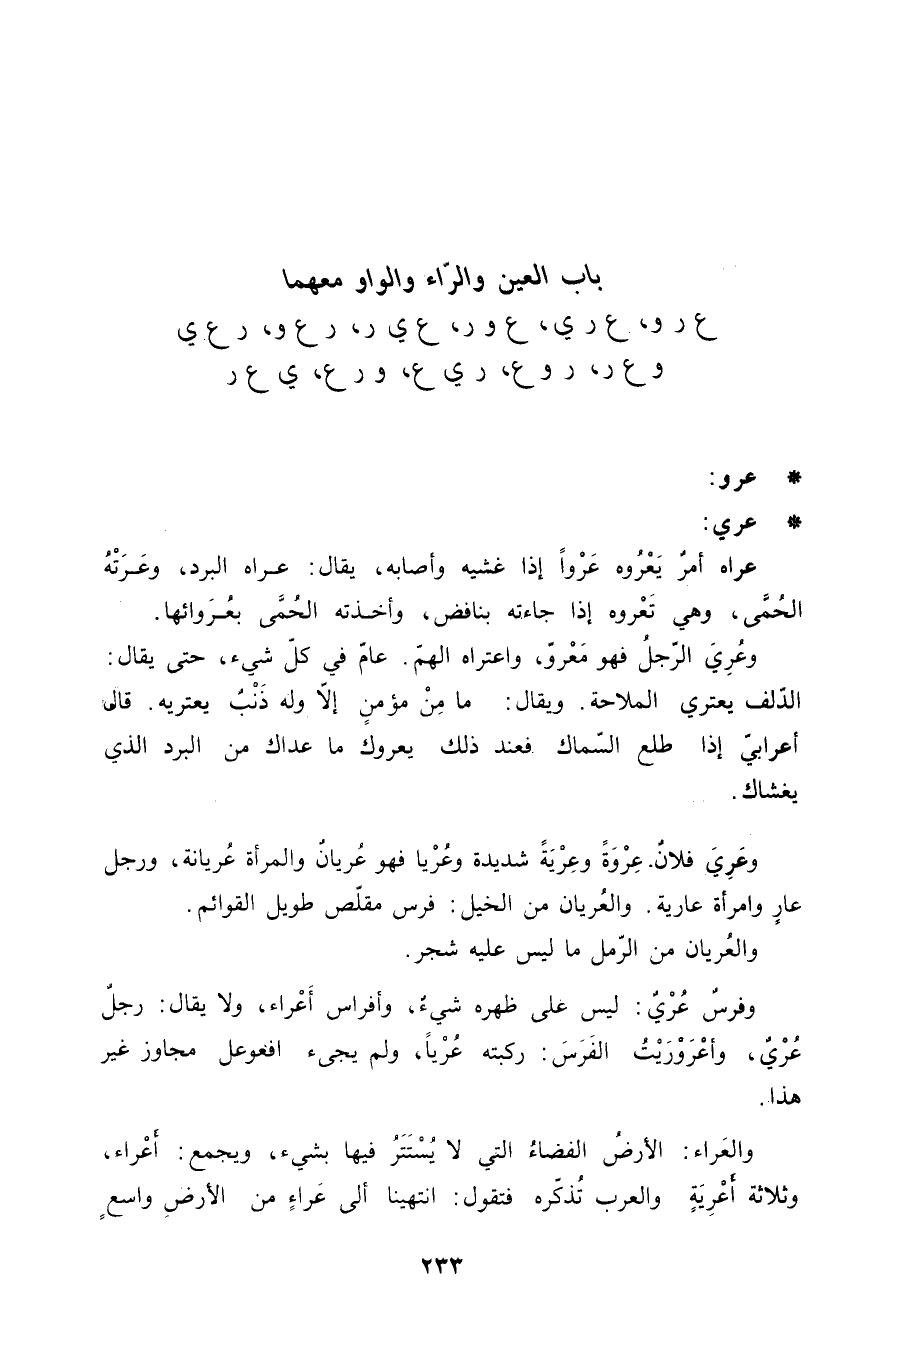 باب العين والرّاء والواو معهما
ع ر و، ع ر ي، ع و ر، ع ي ر، ر ع و، ر ع ي
و ع ر، ر و ع، ر ي ع، و ر ع، ي ع ر
* عرو:
* عري:
عراه أمرٌ يَعْرُوه عَرْواً إذا غشيه وأصابه، يقال: عـراه البرد، وعَـرَتْهُ
الحُمَّى، وهي تَعْروه إذا جاءته بنافض، وأخـذته الحُمَّى بعُـرَوائها.
وعُرِيَ الرّجلُ فهو مَعْروّ، واعتراه الهمّ. عامّ في كلّ شيء، حتى يقال:
الدّلف يعتري الملاحة. ويقال: ما مِنْ مؤمنٍ إلاّ وله ذَنْبٌ يعتريه. قال
أعرابيّ إذا طلع السّماك فعند ذلك يعروك ما عداك من البرد الذي
يغشاك.
وعَرِيَ فلانٌ. عِرْوَةً وعِرْيَةً شديدة وعُرْيا فهو عُريانٌ والمرأة عُريانة، ورجل
عارٍ وامرأة عارية. والعُريان من الخيل: فرس مقلّص طويل القوائم.
والعُريان من الرّمل ما ليس عليه شجر.
وفرسٌ عُرْيٌ: ليس على ظهره شيءٌ، وأفراس أَعْراء، ولا يقال: رجلٌ
عُرْيٌ، وأعْرَوْرَيْتُ الفَرَسَ: ركبته عُرْياً، ولم يجىء افعوعل مجاوز غير
هذا.
والعَراء: الأرضُ الفضاءُ التي لا يُسْتَتَرُ فيها بشيء، ويجمع: أَعْراء،
وثلاثة أَعْرِيَةٍ والعرب تُذكّره فتقول: انتهينا ألى عَراءٍ من الأرضِ واسعٍ
٢٣٣